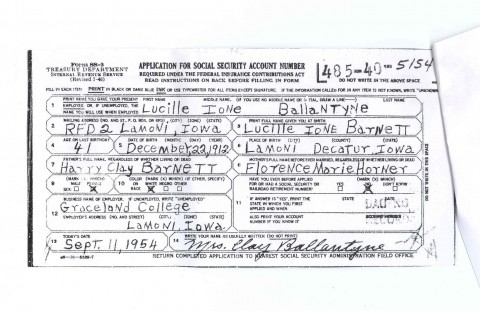 FORM SS-5
TREASURY DEPARTMENT
INTERNAL REVENUE SERVICE
APPLICATION FOR SOCIAL SECURITY ACCOUNT NUMBER
REQUIRED UNDER THE FEDERAL INSURANCE CONTRIBUTIONS ACT
READ INSTRUCTIONS ON BACK BEFORE FILLING IN FORM
485-40 5154
DO NOT WRITE IN THE ABOVE SPACE
FILL IN EACH ITEM PRINT IN BLACK OR DARK BLUE INK OR USE TYPEWRITER FOR ALL ITEMS EXCEPT SIGNATURE. IF THE INFORMATION CALLED FOR IN ANY ITEM IS NOT KNOWN, WRITE "UNKNOWN"
1 PRINT NAME YOU GAVE YOUR PRESENT EMPLOYER, OR IF UNEMPLOYED, THE NAME YOU WILL USE WHEN EMPLOYED
FIRST NAME MIDDLE NAME LAST NAME
Lucille Ione Ballantyne
2 MAILING ADDRESS (NO. AND ST., P. O. BOX, OR RFD) (CITY) (ZONE) (STATE)
RFD 2 Lamoni Iowa
3 PRINT FULL NAME GIVEN YOU AT BIRTH
Lucille Ione Barnett
4 AGE ON LAST BIRTHDAY
41
5 December, 22, 1912
6 PLACE OF BIRTH (CITY) (COUNTY) (STATE)
Lamoni Decatur, Iowa
7 FATHER'S FULL NAME, REGARDLESS OF WHETHER LIVING OR DEAD
Harry Clay Barnett
8 MOTHER'S FULL NAME BEFORE EVER MARRIED, REGARDLESS OF WHETHER LIVING OR DEAD
Florence Marie Horner
9 MARK (X) WHICH
SEX MALE FEMALE X
10 MARK (X) WHICH
COLOR OR RACE WHITE X NEGRO OTHER
11 HAVE YOU EVER BEFORE APPLIED FOR OR HAD A SOCIAL SECURITY OR RAILROAD RETIREMENT NUMBER?
YES NO X DON'T KNOW
12 BUSINESS NAME OF EMPLOYER. IF UNEMPLOYED, WRITE "UNEMPLOYED"
Graceland College
EMPLOYER'S ADDRESS (NO. AND STREET) (CITY) (ZONE) (STATE)
Lamoni, Iowa
IF ANSWER IS "YES", PRINT THE STATE IN WHICH YOU FIRST APPLIED AND WHEN
STATE DATE
ALSO PRINT YOUR ACCOUNT NUMBER IF YOU KNOW IT
ACCOUNT NUMBER
13 TODAY'S DATE
Sept. 11, 1954
14 WRITE YOUR NAME AS USUALLY WRITTEN (DO NOT PRINT)
Mrs. Clay Ballantyne
RETURN COMPLETED APPLICATION TO NEAREST SOCIAL SECURITY ADMINISTRATION FIELD OFFICE